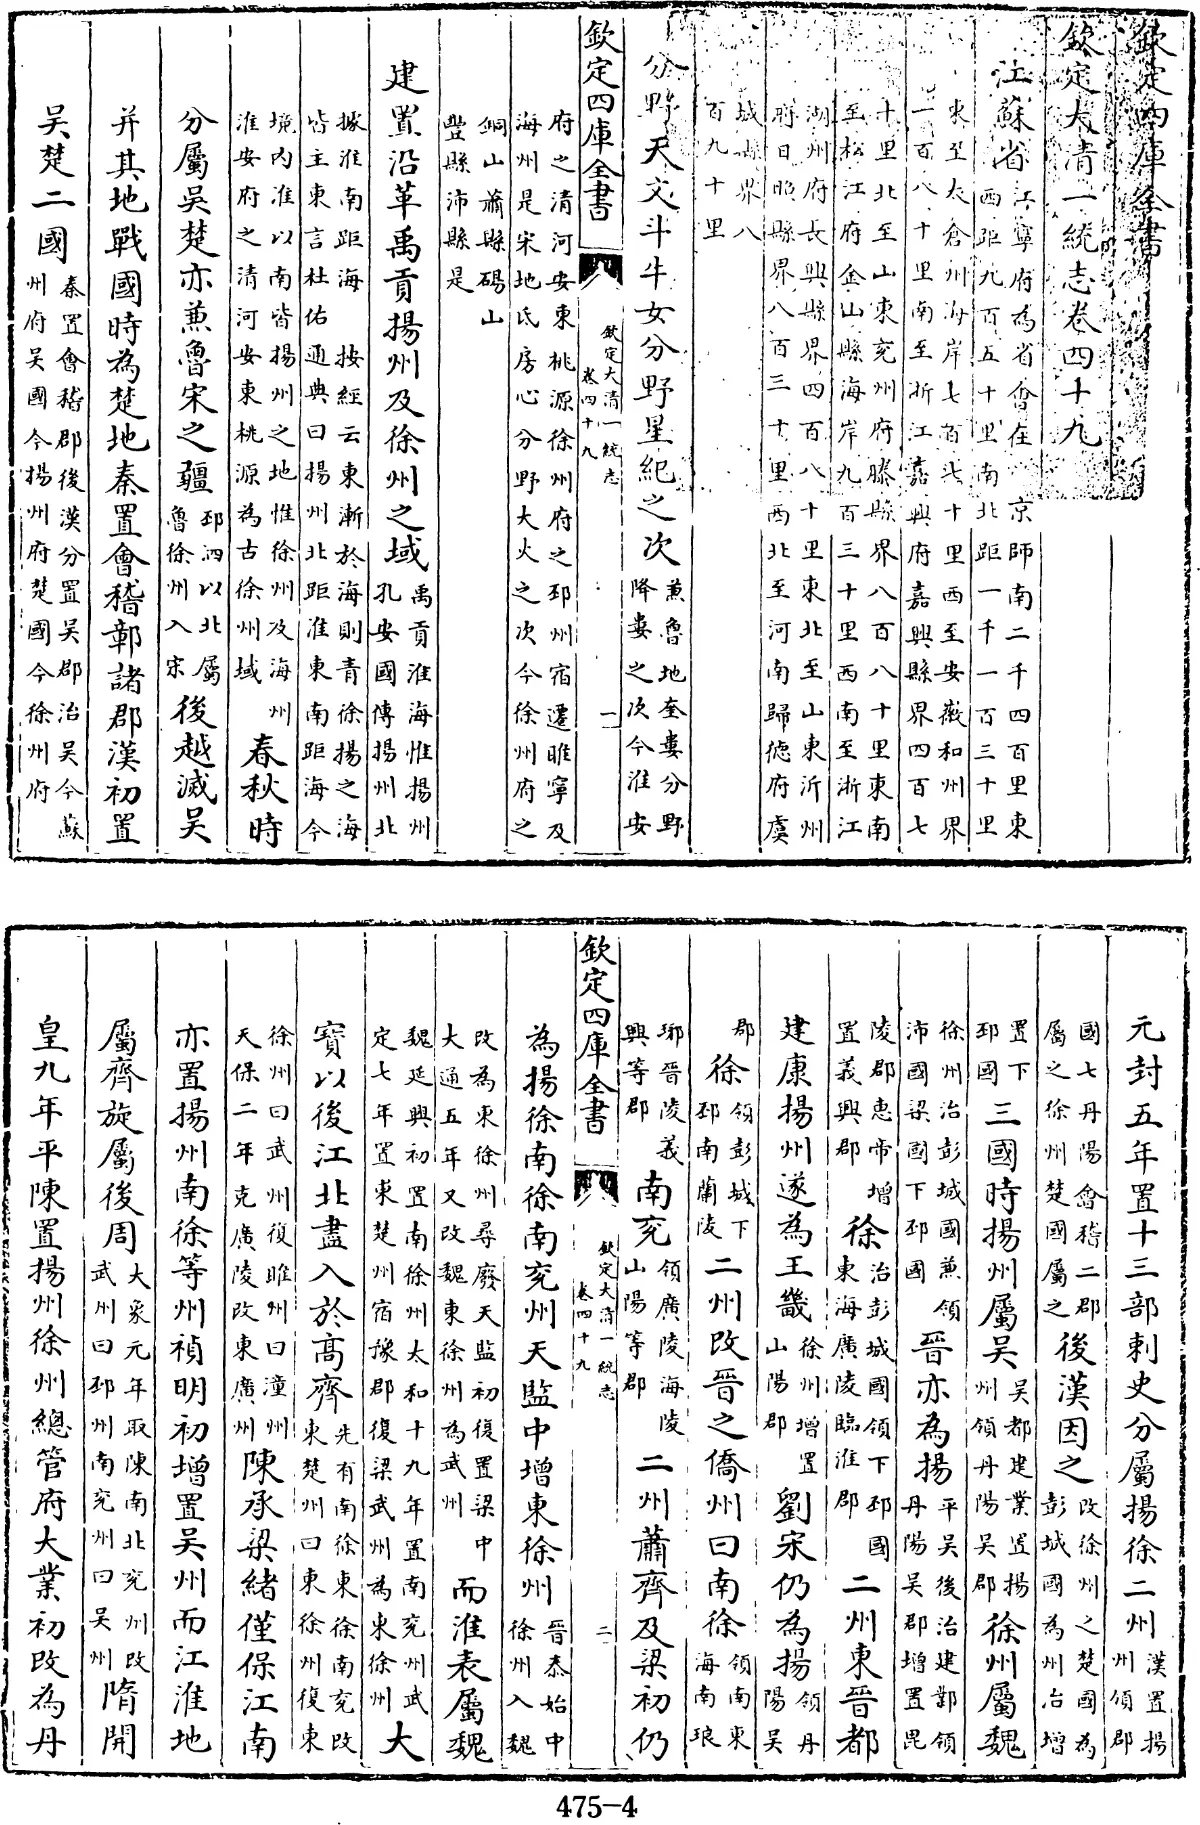 欽定四庫全書
欽定大清一統志卷四十九
江蘇省江寧府為省會在京師南二千四百里東西距九百五十里南北距一千一百三十里
東至太倉州海岸七百七十里西至安徽和州界一百八十里南至浙江嘉興府嘉興縣界四百七
十里北至山東兖州府滕縣界八百八十里東南至松江府金山縣海岸九百三十里西南至浙江
湖州府長興縣界四百八十里東北至山東沂州府日照縣界八百三十里西北至河南歸徳府虞
城縣界八百九十里
分野天文斗牛女分野星紀之次兼魯地奎婁分野降婁之次今淮安
欽定四庫全書 欽定大清一統志卷四十九 一
府之清河安東桃源徐州府之邳州宿遷睢寧及海州是宋地氐房心分野大火之次今徐州府之
銅山蕭縣碭山豐縣沛縣是
建置沿革禹貢揚州及徐州之域禹貢淮海惟揚州孔安國傳揚州北
據淮南距海按經云東漸於海則青徐揚之海皆主東言杜佑通典曰揚州北距淮東南距海今
境内淮以南皆揚州之地惟徐州及海州淮安府之清河安東桃源為古徐州域春秋時
分屬吳楚亦兼魯宋之疆邳泗以北屬魯徐州入宋後越滅吳
并其地戰國時為楚地秦置會稽鄣諸郡漢初置
吳楚二國秦置會稽郡後漢分置吳郡治吳今蘇州府吳國今揚州府楚國今徐州府
元封五年置十三部刺史分屬揚徐二州漢置揚州領郡
國七丹陽會稽二郡屬之徐州楚國屬之後漢因之改徐州之楚國為彭城國為州治增
置下邳國三國時揚州屬吳吳都建業置揚州領丹陽吳郡徐州屬魏
徐州治彭城國兼領沛國梁國下邳國晉亦為揚平吳後治建鄴領丹陽吳郡增置毘
陵郡惠帝增置義興郡徐治彭城國領下邳國東海廣陵臨淮郡二州東晉都
建康揚州遂為王畿徐州增置山陽郡劉宋仍為揚領丹陽吳
郡徐領彭城下邳南蘭陵二州改晉之僑州曰南徐領南東海南琅
琊晉陵義興等郡南兖領廣陵海陵山陽等郡二州蕭齊及梁初仍
欽定四庫全書 欽定大清一統志卷四十九 二
為揚徐南徐南兖州天監中增東徐州晉泰始中徐州入魏
改為東徐州尋廢天監初復置梁中大通五年又改魏東徐州為武州而淮表屬魏
魏延興初置南徐州太和十九年置南兖州武定七年置東楚州宿豫郡復梁武州為東徐州大
寶以後江北盡入於高齊先有南徐東徐南兖改東楚州曰東徐州復東
徐州曰武州復睢州曰潼州天保二年克廣陵改東廣州陳承梁緒僅保江南
亦置揚州南徐等州禎明初增置吳州而江淮地
屬齊旋屬後周大象元年取陳南北兖州改武州曰邳州南兖州曰吳州隋開
皇九年平陳置揚州徐州總管府大業初改為丹
475-4